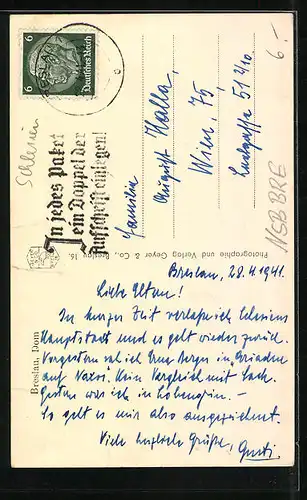 6
Deutsches Reich
6
6.-
Schlesien
In jedes Paket
ein Doppel der
Aufschrift einlegen!
Familie
August Halla,
Wien, 75,
51/10.
NSB BRE
Photographie und Verlag Geyer & Co., Breslau 16.
Breslau, Dom
Breslau, 28.4.1941.
Liebe Eltern!
In kurzer Zeit verlasse ich Schlesiens
Hauptstadt und es geht wieder zurück.
Vorgestern sah ich in "Ariadne
auf Naxos". Kein Vergleich mit
Gestern war ich in Lohengrin. -
So geht es mir also ausgezeichnet.
Viele herzliche Grüße, Gusti.